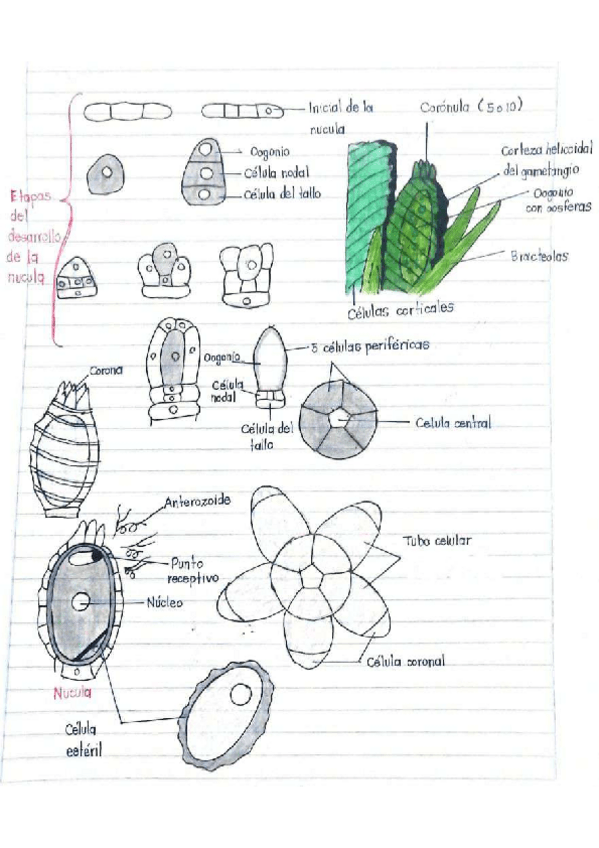 Inicial de la
nucula
Corónula (5 o 10)
Oogonio
Célula nodal
Célula del tallo
Corteza helicoidal
del gametangio
Oogonio
con oosferas
Bracteolas
Células corticales
Etapas
del
desarrollo
de la
nucula
Corona
Oogonio
Célula
nodal
Célula del
tallo
5 células periféricas
Celula central
Anterozoide
Punto
receptivo
Núcleo
Nucula
Célula
estéril
Tubo celular
Célula coronal